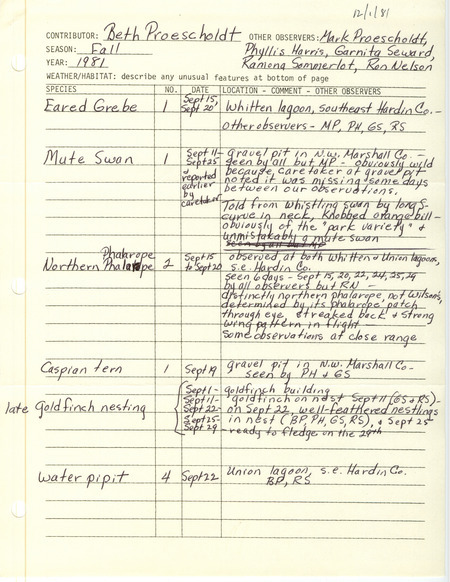 12/1/81
CONTRIBUTOR: Beth Proescholdt OTHER OBSERVERS: Mark Proescholdt,
SEASON: Fall Phyllis Harris, Garnita Seward,
YEAR: 1981 Ramona Sommerlot, Ron Nelson
WEATHER/HABITAT: describe any unusual features at bottom of page
SPECIES NO. DATE LOCATION - COMMENT - OTHER OBSERVERS
Eared Grebe 1 Sept 15, Sept 20 Whitten lagoon, southeast Hardin Co. -
other observers - MP, PH, GS, RS
Mute Swan 1 Sept 11- gravel pit in N.W. Marshall Co. -
Sept 25 seen by all but MP - obviously wild
& reported because caretaker at gravel pit
earlier noted it was missing some days
by between our observations.
caretaker Told from whistling swan by long S-
curve in neck, knobbed orange bill -
obviously of the "park variety" &
unmistakably a mute swan
seen by all but MP
Phalarope
Northern Phalarope 2 Sept 15 observed at both Whitten & Union lagoons,
to Sept 20 s.e. Hardin Co.
seen 6 days - Sept 15, 20, 22, 24, 25, 29
by all observers but RN -
distinctly northern phalarope, not Wilson's,
determined by its phalarope patch
through eye, streaked back & strong
wing pattern in flight -
some observations at close range
Caspian tern 1 Sept 19 gravel pit in N.W. Marshall Co. -
seen by PH & GS
late Goldfinch nesting Sept 1- goldfinch building
Sept 11- goldfinch on nest Sept 11 (GS & RS) -
Sept 22- on Sept 22, well-feathered nestlings
Sept 25- in nest (BP, PH, GS, RS), & Sept 25
Sept 29 - ready to fledge on the 29th
Water pipit 4 Sept 22 Union lagoon, s.e. Hardin Co.
BP, RS